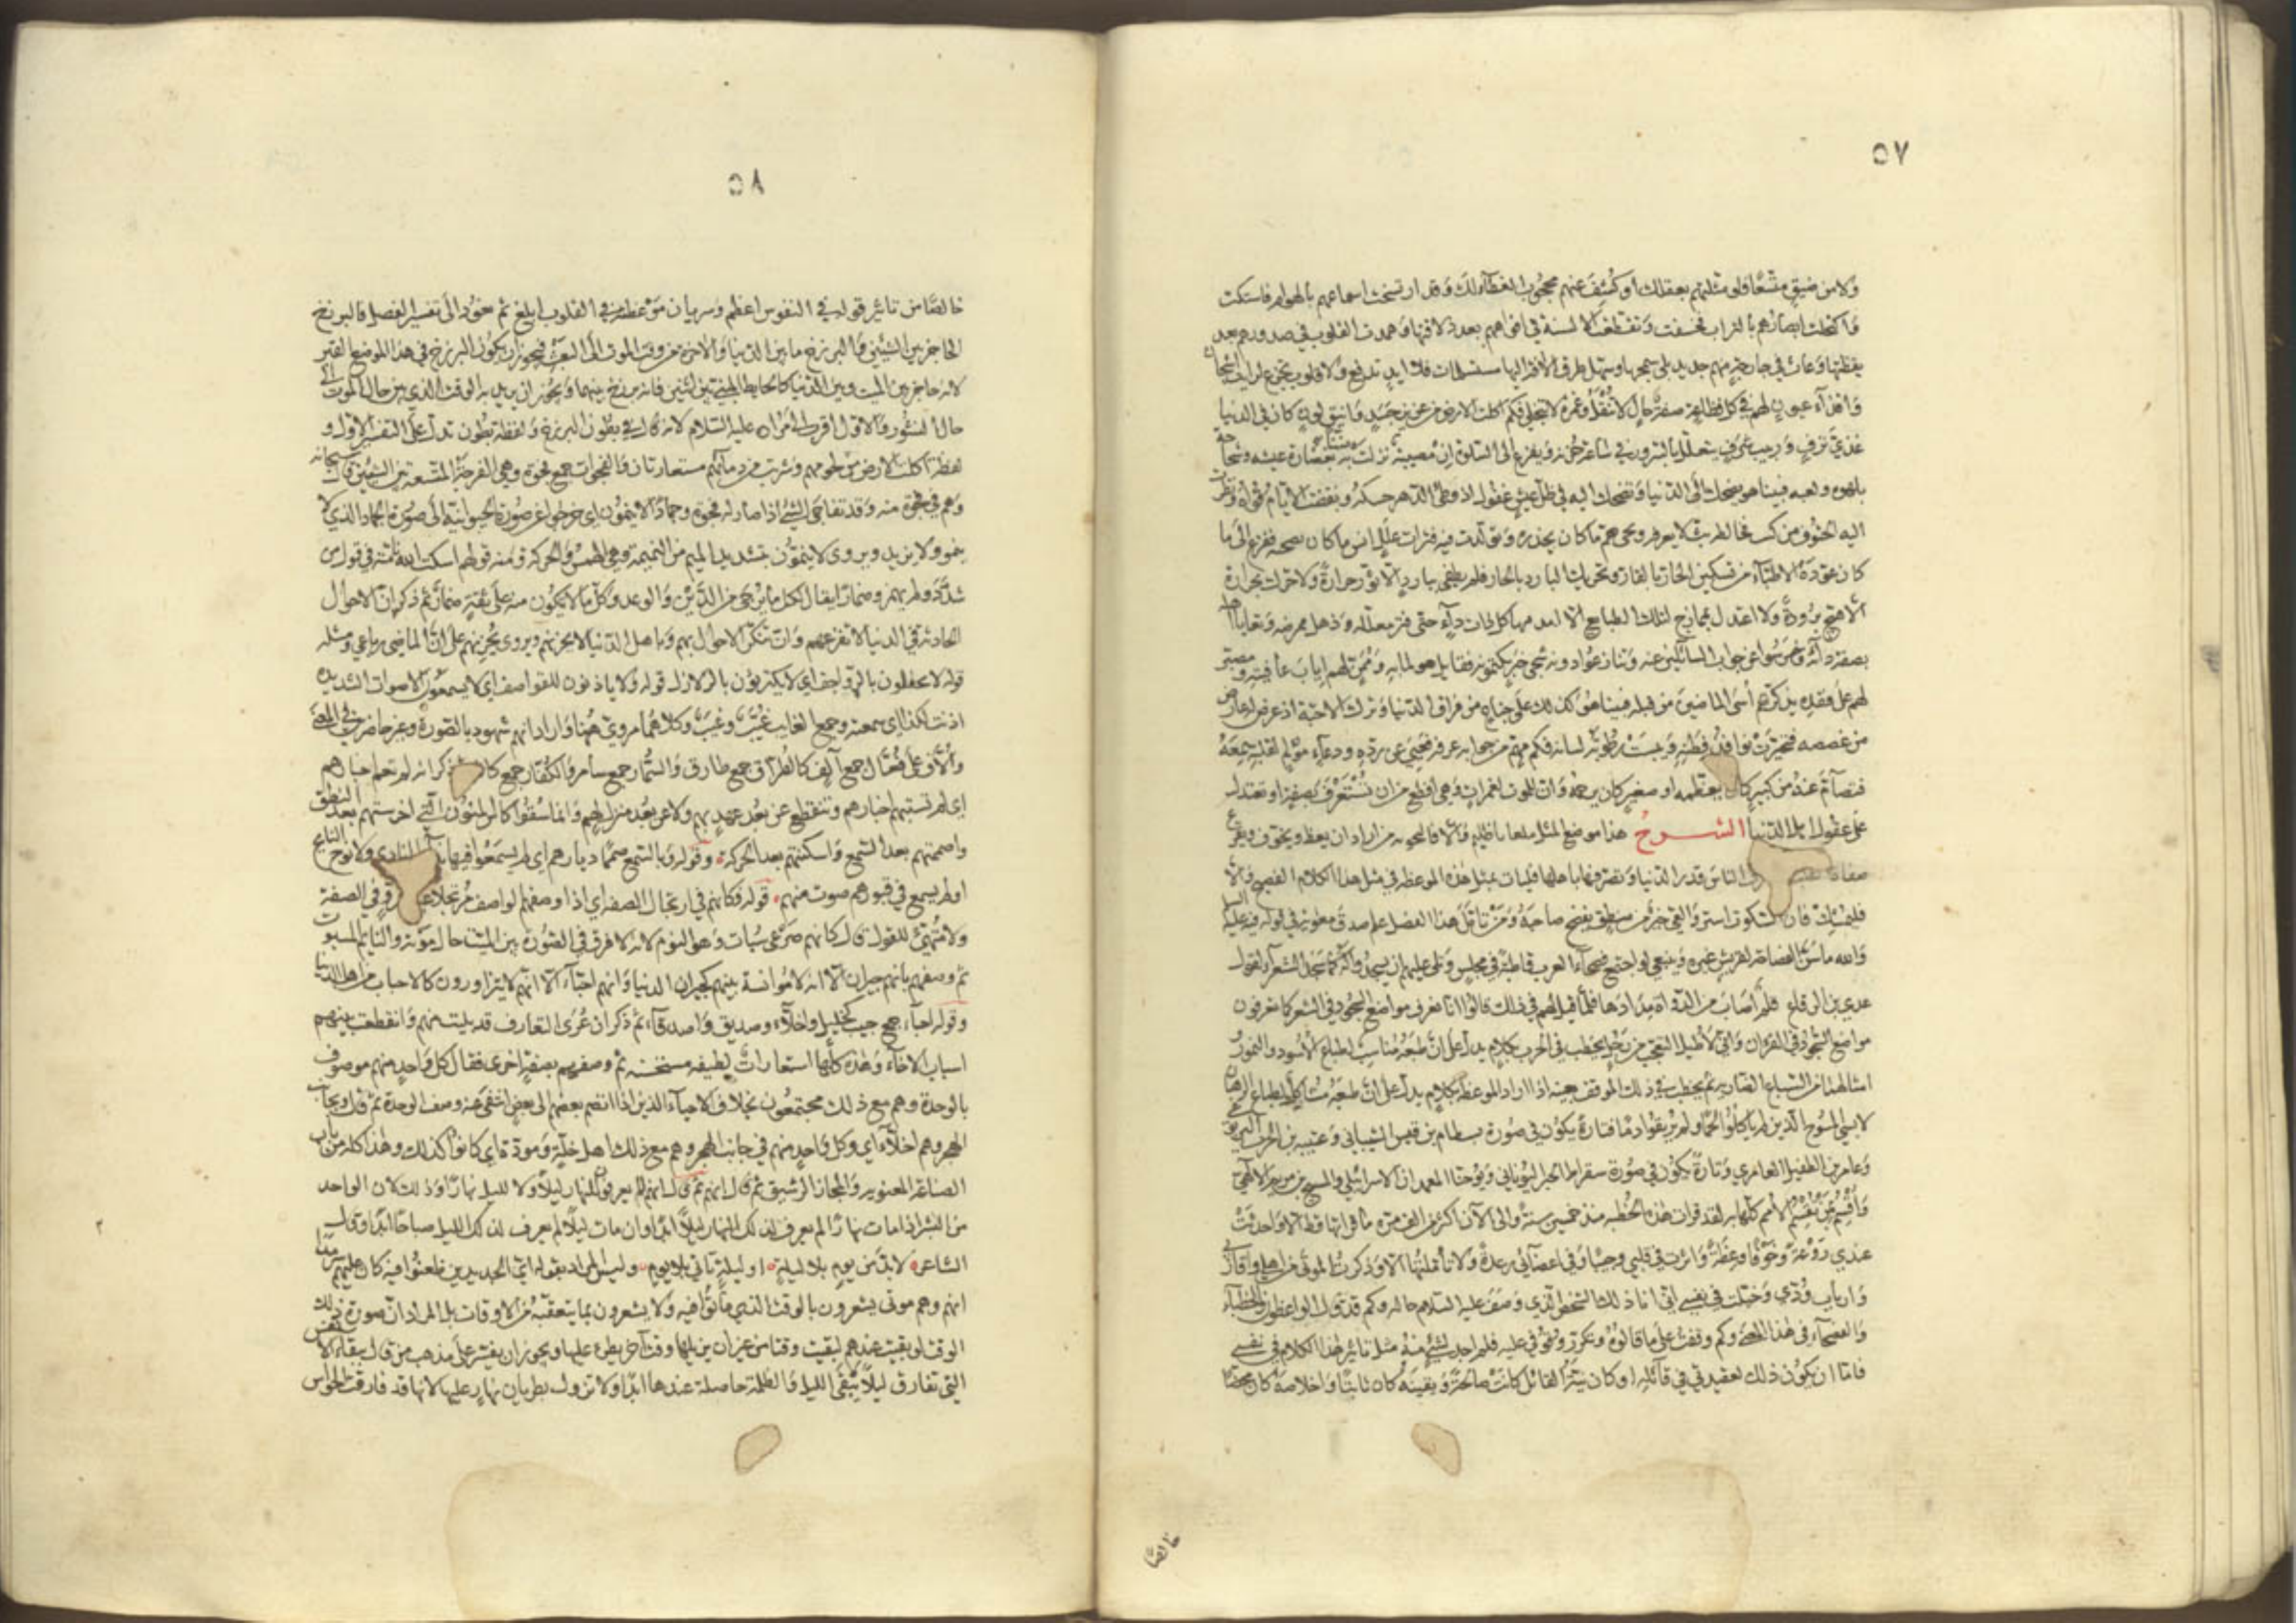 ٥٧
ولا من ضيق متسعا فلو مثلتهم بعقلك او كشف عنهم محجوب الغطاء لك وقد ارتسخت اسماعهم بالهوام فاستكت
واكتحلت ابصارهم بالتراب فخسفت وتقطعت الالسنة في افواههم بعد ذلاقتها وهمدت القلوب في صدورهم بعد
يقظتها وعاث في كل جارحة منهم جديد بلى سمجها وسهل طرق الافة اليها مستسلمات فلا ايد تدفع ولا قلوب تجزع لرايت اشجان
واقذاء عيون لهم في كل فظاعة صفة حال لا تنتقل وغمرة لا تنجلي فكم اكلت الارض من عزيز جسد وانيق لون كان في الدنيا
غذي ترف وربيب شرف يتعلل بالسرور في ساعة حزنه ويفزع الى السلوة ان مصيبة نزلت به ضنا بغضارة عيشه وشحاحة
بلهوه ولعبه فبينا هو يضحك الى الدنيا وتضحك اليه في ظل عيش غفول اذ وطئ الدهر به حسكه ونقضت الايام قواه ونظرت
اليه الحتوف من كثب فخالطه بث لا يعرفه ونجي هم ما كان يجده وتولدت فيه فترات علل انس ما كان بصحته ففزع الى ما
كان عوده الاطباء من تسكين الحار بالقار وتحريك البارد بالحار فلم يطفئ ببارد الا ثور حرارة ولا حرك بحار
الا هيج برودة ولا اعتدل بممازج لتلك الطبائع الا امد منها كل ذات داء حتى فتر معلله وذهل ممرضه وتعايا اهله
بصفة دائه وخرسوا عن جواب السائلين عنه وتنازعوا دونه شجي خبر يكتمونه فقائل هو لما به وممن لهم اياب عافيته ومصبر
لهم على فقده يذكرهم اسى الماضين من قبله فبينا هو كذلك على جناح من فراق الدنيا وترك الاحبة اذ عرض له عارض
من غصصه فتحيرت نوافذ فطنته ويبست رطوبة لسانه فكم من مهم من جوابه عرفه فعي عن رده ودعاء مؤلم لقلبه سمعه
فتصام عنه من كبير كان يعظمه او صغير كان يرحمه وان للموت لغمرات هي افظع من ان تستغرق بصفة او تعتدل
على عقول اهل الدنيا الشرح هذا موضع المثل ملعا يا ظليم والا فالتخوية من اراد ان يعظ ويخوف ويقرع
صفاة الناس قدر الدنيا وتصرفها باهلها فليات بمثل هذه الموعظة في مثل هذا الكلام الفصيح والا
فليمسك فان السكوت استر والعي خير من منطق يفضح صاحبه ومن تامل هذا الفصل علم صدق معوية في قوله فيه عليه السلام
والله ما سن الفصاحة لقريش غيره وينبغي لو اجتمع فصحاء العرب قاطبة في مجلس وتلي عليهم ان يسجدوا له كما سجد الشعراء لقول
عدي بن الرقاع قلم اصاب من الدواة مدادها فلما قيل لهم في ذلك قالوا انا نعرف مواضع السجود في الشعر كما تعرفون
مواضع السجود في القران واني لاطيل التعجب من رجل يخطب في الحرب بكلام يدل على ان طبعه مناسب لطباع الاسود والنمور
وامثالهما من السباع الضارية ثم يخطب في ذلك الموقف بعينه اذا اراد الموعظة بكلام يدل على ان طبعه مشاكل لطباع الرهبان
لابسي المسوح الذين لم ياكلوا لحما ولم يريقوا دما فتارة يكون في صورة بسطام بن قيس الشيباني وعتيبة بن الحرث اليربوعي
وعامر بن الطفيل العامري وتارة يكون في صورة سقراط الحبر اليوناني ويوحنا المعمدان الاسرائيلي والمسيح بن مريم الالهي
واقسم بمن تقسم الامم كلها به لقد قرات هذه الخطبة منذ خمسين سنة والى الآن اكثر من الف مرة ما قراتها قط الا واحدثت
عندي روعة وخوفا وعظة واثرت في قلبي وجيبا وفي اعضائي رعدة ولا تاملتها الا وذكرت الموتى من اهلي واقاربي
وارباب ودي وخيلت في نفسي اني انا ذلك الشخص الذي وصف عليه السلام حاله وكم قد قال الواعظون والخطباء
والفصحاء في هذا المعنى وكم وقفت على ما قالوه وتكرر وقوفي عليه فلم اجد لشيء منه مثل تاثير هذا الكلام في نفسي
فاما ان يكون ذلك لعقيدتي في قائله او كان نية القائل كانت صالحة ويقينه كان ثابتا واخلاصه كان محضا
خالصا
٥٨
خالصا من تاثير قوله في النفوس اعظم وسريان موعظته في القلوب ابلغ ثم نعود الى تفسير الفصل فالبرزخ
الحاجز بين الشيئين والبرزخ ما بين الدنيا والاخرة من وقت الموت الى البعث فيجوز ان يكون البرزخ في هذا الموضع القبر
لانه حاجز بين الميت وبين الدنيا كالحائط المبني بين اثنين فانه برزخ بينهما ويجوز ان يريد به الوقت الذي بين حال الموت الى
حال النشور والاول اقرب الى مراده عليه السلام لانه قال في بطون البرزخ ولفظة بطون تدل على التفسير الاول و
لفظة اكلت الارض من لحومهم وشربت من دمائهم مستعارتان والفجوات جمع فجوة وهي الفرجة المتسعة بين الشيئين قال سبحانه
وهم في فجوة منه وقد تفاجى الشيء اذا صار له فجوة وجمادا لا ينمون اي خرجوا عن صورة الحيوانية الى صورة الجماد الذي لا
ينمو ولا يزيد ويروى لا ينمون بتشديد الميم من النميمة وهي الهمس والحركة ومنه قولهم اسكت الله نامته في قول من
شدد ولم يهمز وضمارا يقال لكل ما لا يرجى من الدين والوعد وكل ما لا تكون منه على ثقة ضمار ثم ذكر ان الاحوال
الحادثة في الدنيا لا تفزعهم وان تنكر الاحوال بهم وباهل الدنيا لا يحزنهم ويروى يحزنهم على ان الماضي رباعي ومثله
قوله لا يحفلون بالرواجف اي لا يكترثون بالزلازل قوله ولا ياذنون للقواصف اي لا يسمعون الاصوات الشديدة
اذنت لكذا اي سمعته وجمع الغايب غيب وغيب وكلاهما مروي ههنا واراد انهم شهود بالصورة وغير حاضرين في المعنى
والاف على فعال جمع آلف كالطراق جمع طارق والسمار جمع سامر والكفار جمع كا ذكر انه لم تعم اخبارهم
اي لم تستبهم اخبارهم وتنقطع عن بعد عهد بهم ولا عن بعد منزل لهم وانما سقوا كاس المنون التي اخرستهم بعد النطق
واصمتهم بعد السمع واسكنتهم بعد الحركة وقوله وبالسمع صمما ديارهم اي لم يسمعوا فيها المنادي ولا نوح النائح
او لم يسمع في قبورهم صوت منهم قوله فكانهم في ارتجال الصفة اي اذا وصفهم الواصف مرتجلا غير و في الصفة
ولا متهيئ للقول قال كانهم صرعى سبات وهو النوم لانه لا فرق في الصورة بين الميت حال موته والنائم المسبوت
ثم وصفهم بانهم جيران الا انه لا موانسة بينهم كجيران الدنيا وانهم احباء الا انهم لا يتزاورون كالاحباب من اهل الدنيا
وقوله احباء جمع حبيب كخليل واخلاء وصديق واصدقاء ثم ذكر ان عرى التعارف قد بليت منهم وانقطعت بينهم
اسباب الاخاء وهذه كلها استعارات لطيفة مستحسنة ثم وصفهم بصفة اخرى فقال كل واحد منهم موصوف
بالوحدة وهم مع ذلك مجتمعون بخلاف الاحياء الذين اذا انضم بعضهم الى بعض انتفى عنه وصف الوحدة ثم قال وبجانب
الهجر وهم اخلاء اي وكل واحد منهم في جانب الهجر وهم مع ذلك اهل خلة ومودة اي كانوا كذلك وهذا كله من باب
الصناعة المعنوية والمجاز الرشيق ثم قال انهم لم يعرفوا للنهار ليلا ولا لليل نهارا وذلك لان الواحد
من البشر اذا مات نهارا لم يعرف لذلك النهار ليلا ابدا وان مات ليلا لم يعرف لذلك الليل صباحا ابدا وقال
الشاعر لا بد من يوم بلا ليلة او ليلة تاتي بلا يوم وليس المراد بقوله اي الجديدين ظعنوا فيه كان عليهم سرمدا
انهم وهم موتى يشعرون بالوقت الذي ماتوا فيه ولا يشعرون بما يتعقبه من الاوقات بل المراد ان صورة ذلك
الوقت لو بقيت عندهم لبقيت وقتا من غير ان يزيلها وقت آخر يطرء عليها ويجوز ان يفسر على مذهب من قال ببقاء الانفس
التي تفارق ليلا تبقى الليل والظلمة حاصلة عندها ابدا ولا تزول بطريان نهار عليها لانها قد فارقت الحواس